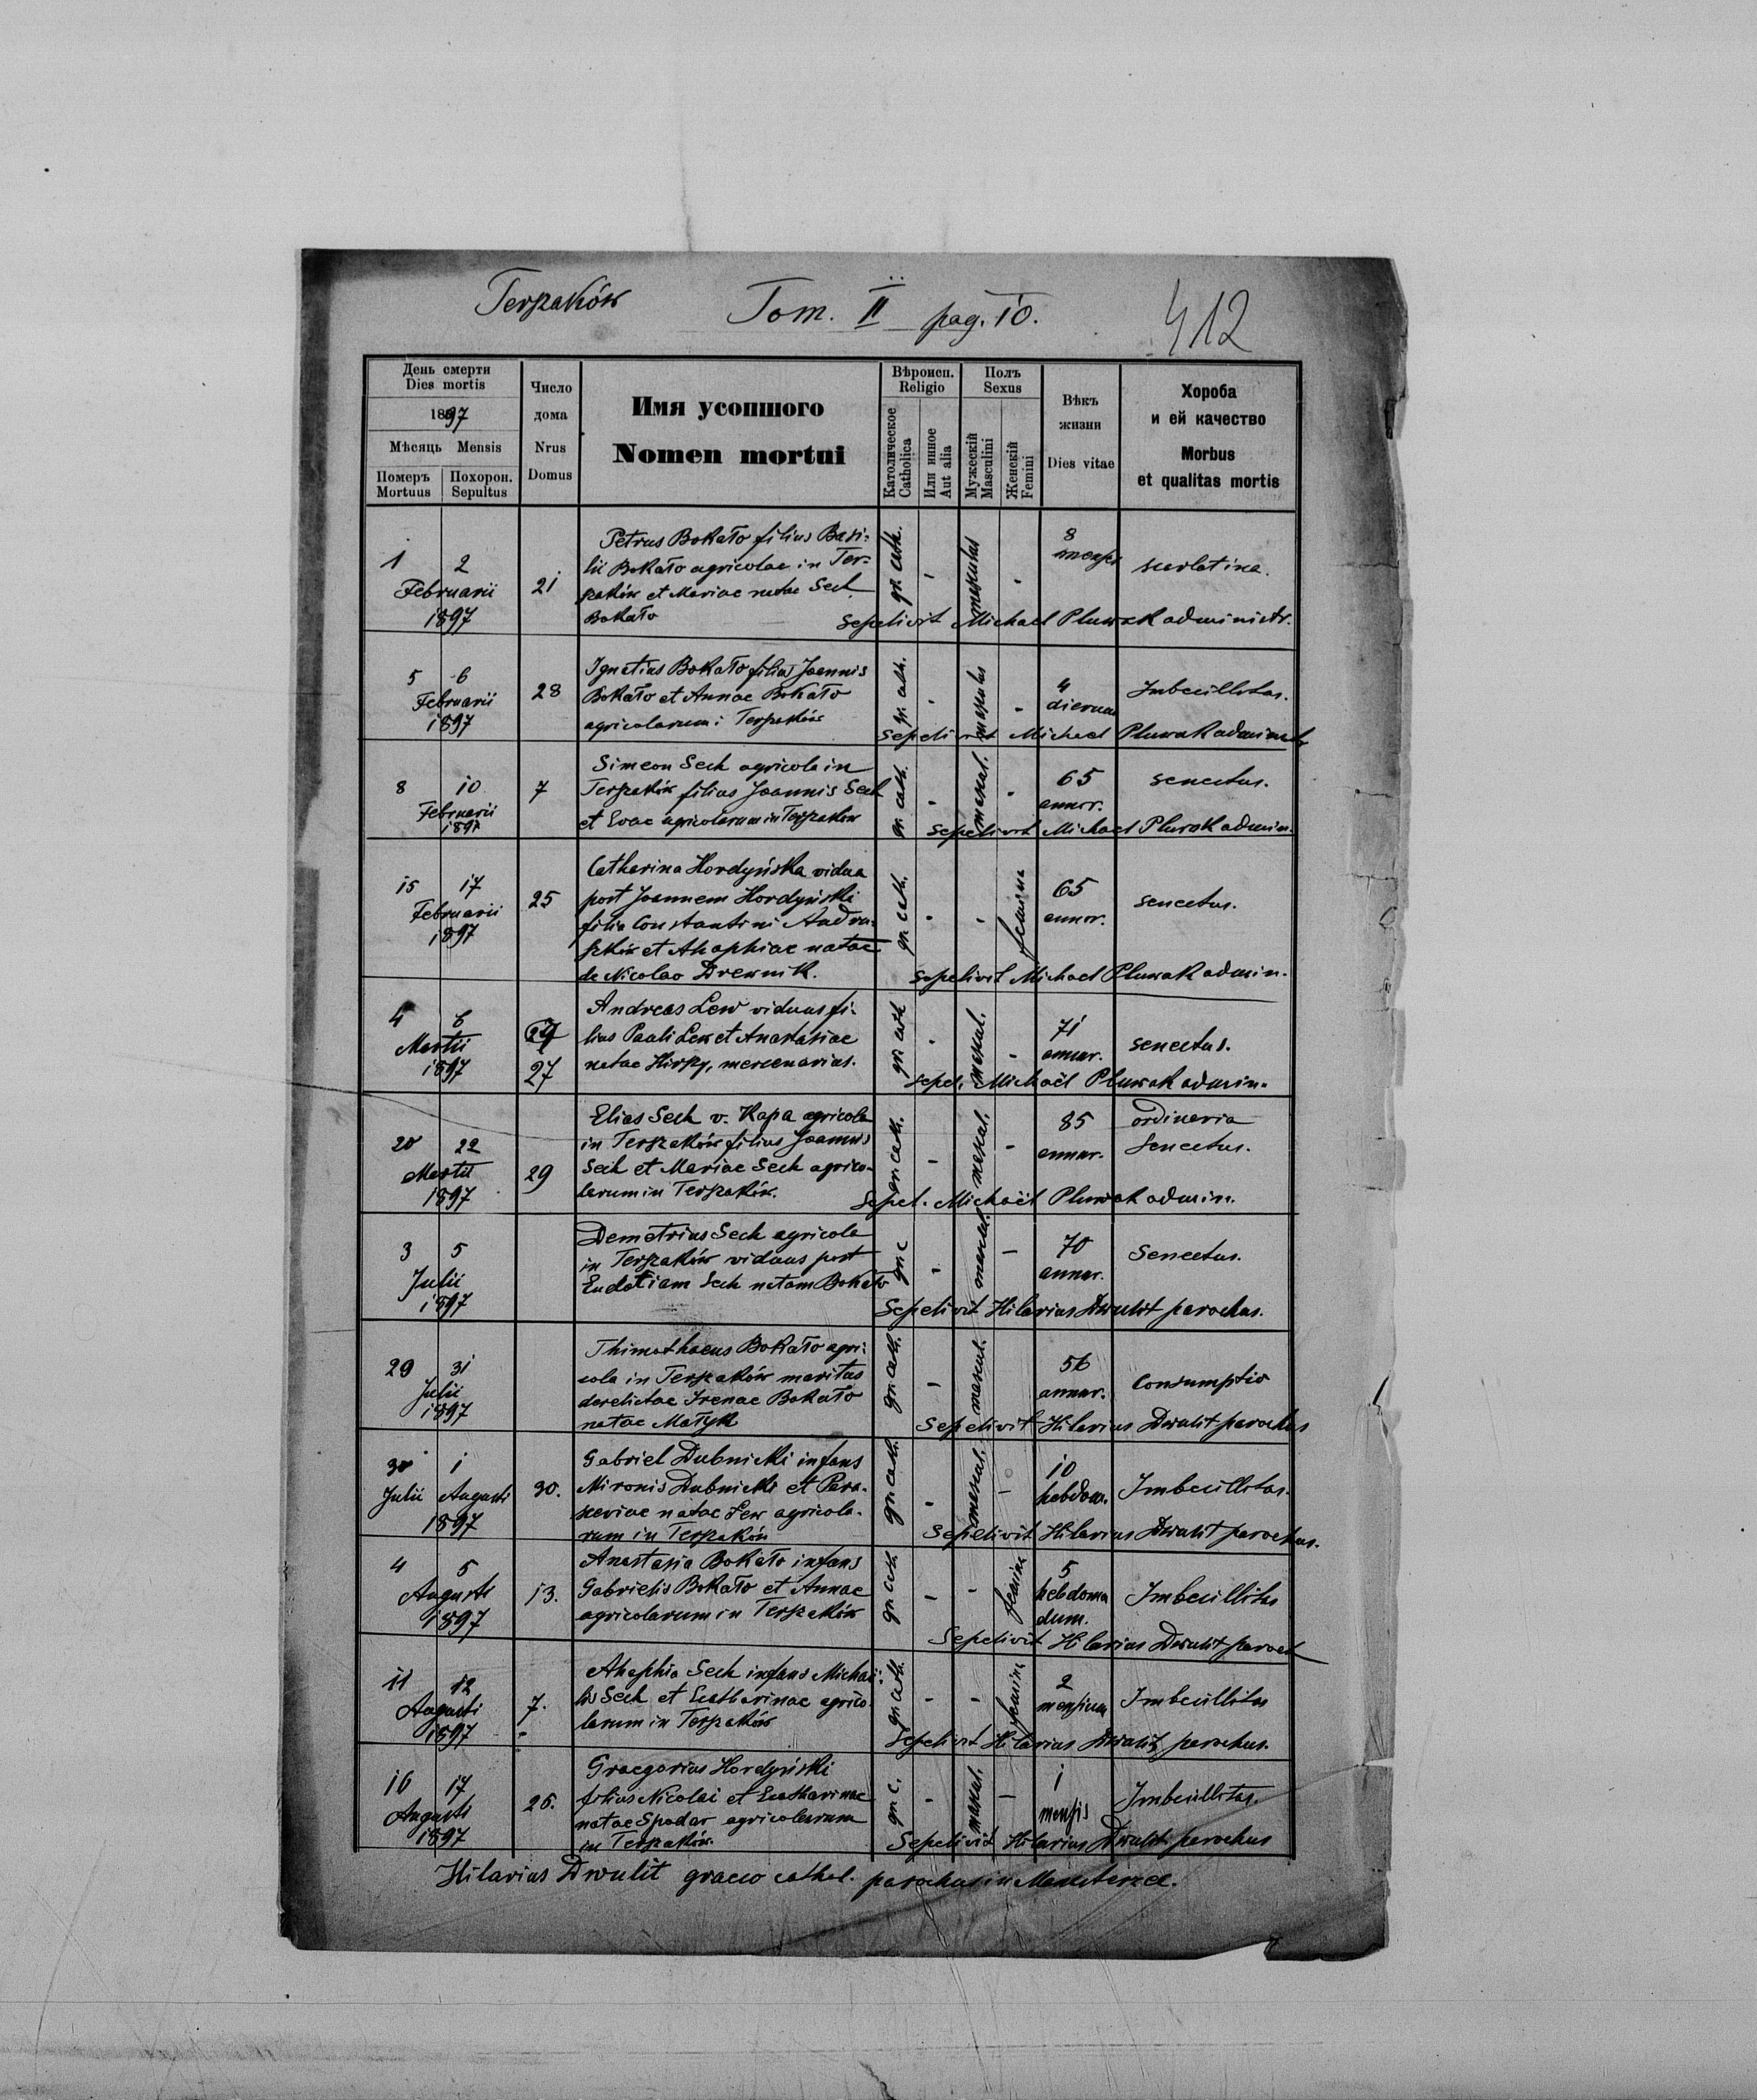 Terszaków
Tom. II pag. 10.
412
День смерти
Dies mortis
1897
Мѣсяць Mensis
Померъ Похорон.
Mortuus Sepultus
Число
дома
Nrus
Domus
Имя усопшого
Nomen mortui
Вѣроисп.
Religio
Католическое
Catholica
Или инное
Aut alia
Полъ
Sexus
Мужескій
Masculini
Женскій
Femini
Вѣкъ
жизни
Dies vitae
Хороба
и ей качество
Morbus
et qualitas mortis
1 2
Februarii
1897
21
Petrus Bokało filius Basi-
lii Bokało agricolae in Ter-
szaków et Mariae natae Sech
Bokało
gr. cath. - masculus -
8
menses
scarlatina.
Sepelivit Michael Pluwak administr.
5 6
Februarii
1897
28
Ignatius Bokało filius Joannis
Bokało et Annae Bokało
agricolarum i Terszaków
gr. cath. - masculus -
4
dierum
Imbecillitas.
Sepelivit Michael Pluwak
8 10
Februarii
1897
7
Simeon Sech agricola in
Terszaków filius Joannis Sech
et Evae agricolarum in Terszaków
gr. cath. - mascul. -
65
annor.
senectus.
Sepelivit Michael Pluwak admin.
15 17
Februarii
1897
25
Catharina Hordyńska vidua
post Joannem Hordyński
filia Constantini Andru-
szków et Ahaphiae natae
de Nicolao Drewnik.
gr. cath. - - femina
65
annor.
senectus.
Sepelivit Michael Pluwak admin.
4 6
Martii
1897
27
Andreas Lew viduus fi-
lius Pauli Lew et Anastasiae
natae Hirszy, mercenarius.
gr. cath - mascul. -
71
annor.
senectus.
Sepel. Michaël Pluwak admin.
20 22
Martii
1897
29
Elias Sech v. Kapa agricola
in Terszaków filius Joannis
Sech et Mariae Sech agrico-
larum in Terszaków.
gr. cath. - mascul. -
85
annor.
ordinaria
senectus.
Sepel. Michaël Pluwak admin.
3 5
Julii
1897
Demetrius Sech agricola
in Terszaków viduus post
Eudotiam Sech natam Bokało
gr. c - mascul. -
70
annor.
Senectus.
Sepelivit Hilarius Dwulit parochus.
29 31
Julii
1897
Thimothaeus Bokało agri-
cola in Terszaków maritus
derelictae Irenae Bokało
natae Matyk
gr. cath. - mascul.
56
annor.
Consumptio
Sepelivit Hilarius Dwulit parochus
30 1
Julii Augusti
1897
30.
Gabriel Dubnicki infans
Mironis Dubnicki et Para-
sceviae natae Lew agricola-
rum in Terszaków
gr. cath. - mascul. -
10
hebdom.
Imbecillitas.
Sepelivit Hilarius Dwulit parochus.
4 5
Augusti
1897
13.
Anastasia Bokało infans
Gabrielis Bokało et Annae
agricolarum in Terszaków
gr. cath - - femina
5
hebdoma
dum.
Imbecillitas
Sepelivit Hilarius Dwulit paroch
11 12
Augusti
1897
7.
Ahaphia Sech infans Michaë-
lis Sech et Catharinae agrico-
larum in Terszaków
gr. cath. - - femina
2
mensium
Imbecillitas
Sepelivit Hilarius Dwulit parochus.
16 17
Augusti
1897
26.
Graegorius Hordyński
filius Nicolai et Catharinae
natae Spodar agricolarum
in Terszaków.
gr. c. - mascul. -
1
mensis
Imbecillitas.
Sepelivit Hilarius Dwulit parochus
Hilarius Dwulit graeco cathol. parochus in